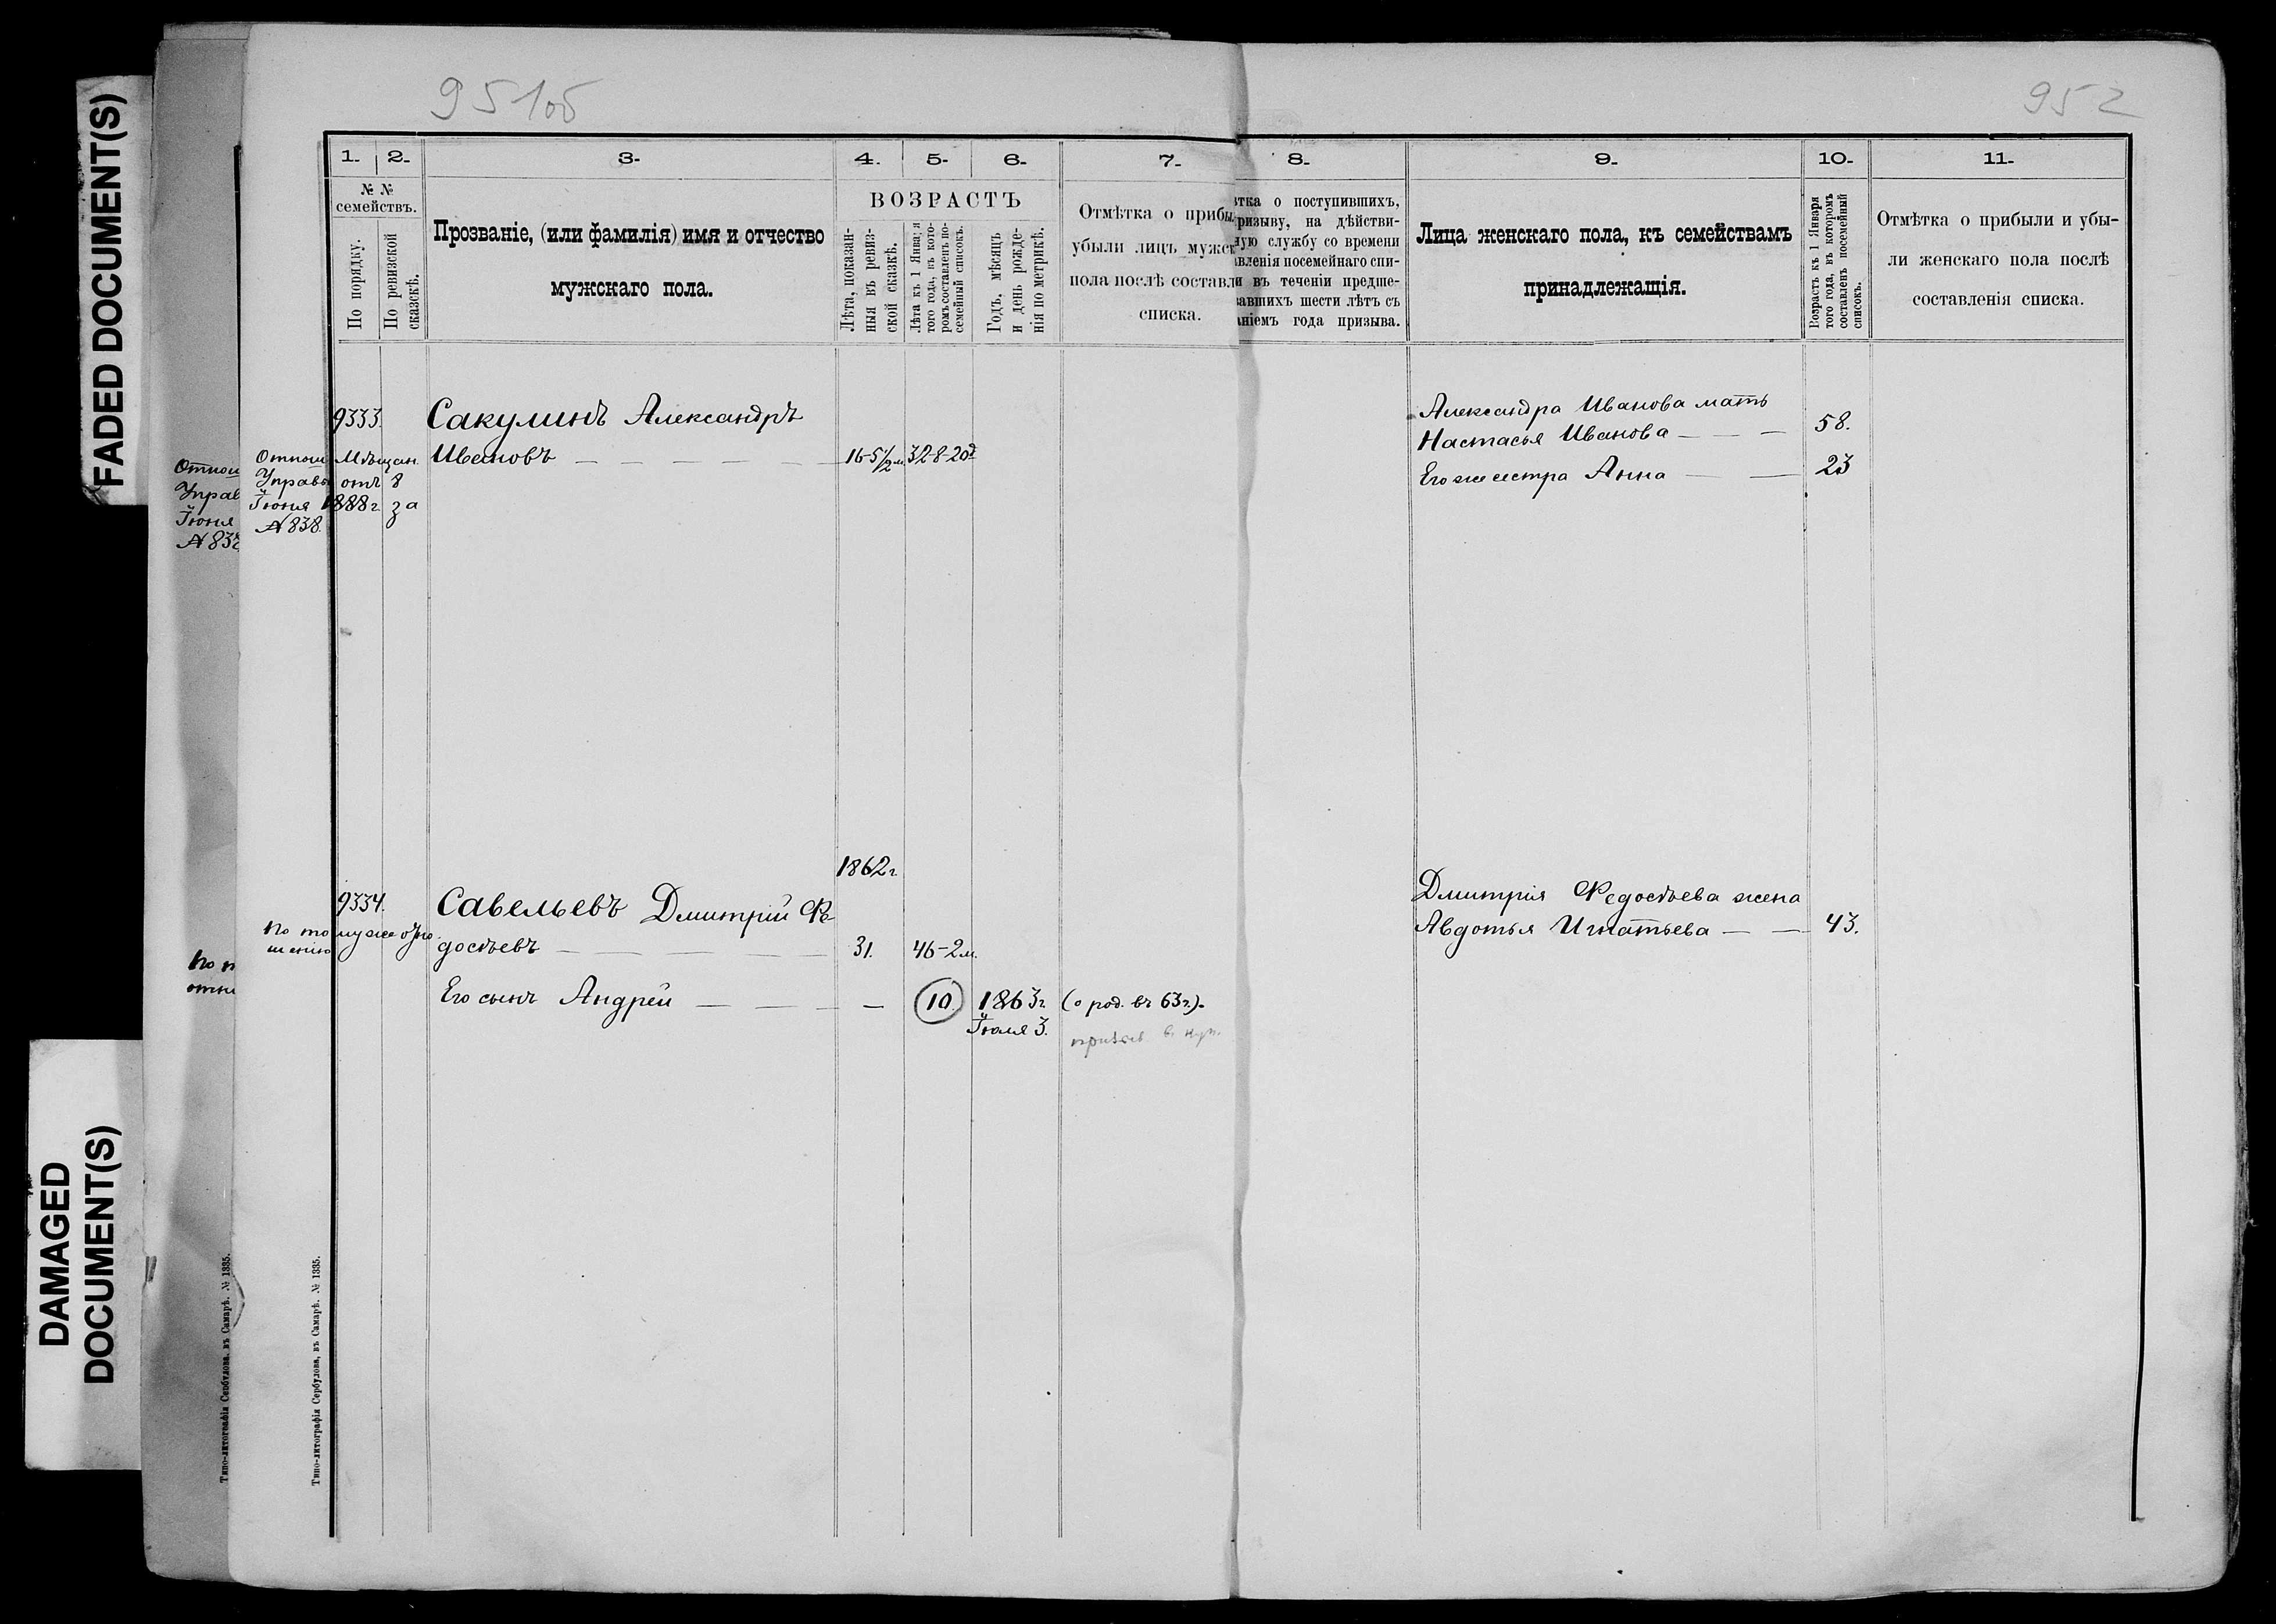 FADED DOCUMENT(S)
DAMAGED
DOCUMENT(S)
951об
952
1. 2. 3. 4. 5. 6. 7. 8. 9. 10. 11.
№ №
семействъ.
По порядку.
По ревизской
сказкѣ.
Прозваніе, (или фамилія) имя и отчество
мужскаго пола.
ВОЗРАСТЪ
Лѣта, показан-
ныя въ ревиз-
ской сказкѣ.
Лѣта къ 1 Января
того года, въ кото-
ромъ составленъ по-
семейный списокъ.
Годъ, мѣсяцъ
и день рожде-
нія по метрикѣ.
Отмѣтка о прибы
убыли лицъ мужск
пола послѣ составл
списка.
тка о поступившихъ,
ризыву, на дѣйстви-
ную службу со времени
вленія посемейнаго спи-
и въ теченіи предше-
авшихъ шести лѣтъ съ
ніемъ года призыва.
Лица женскаго пола, къ семействамъ
принадлежащія.
Возрастъ къ 1 Января
того года, въ которомъ
составленъ посемейный
списокъ.
Отмѣтка о прибыли и убы-
ли женскаго пола послѣ
составленія списка.
9333. Сакулинъ Александръ
Ивановъ 16-5½ м. 32-8-20д
Отнош. Мѣщан.
Управы отъ 8
Іюня 1888 г. за
№ 838.
Александра Иванова мать
Настасья Иванова 58.
Его же сестра Анна 23
Отнош
Управ
Іюня
№ 838
1862 г.
9334. Савельевъ Дмитрій Фе
досѣевъ 31. 46-2 м.
По тому же отно
шенію
Его сынъ Андрей — 10. 1863 г. (о род. въ 63 г.).
Іюля 3.
Дмитрія Федосѣева жена
Авдотья Игнатьева 43.
По т
отно
Типо-литографія Сербулова, въ Самарѣ. № 1335.
Типо-литографія Сербулова, въ Самарѣ. № 1335.